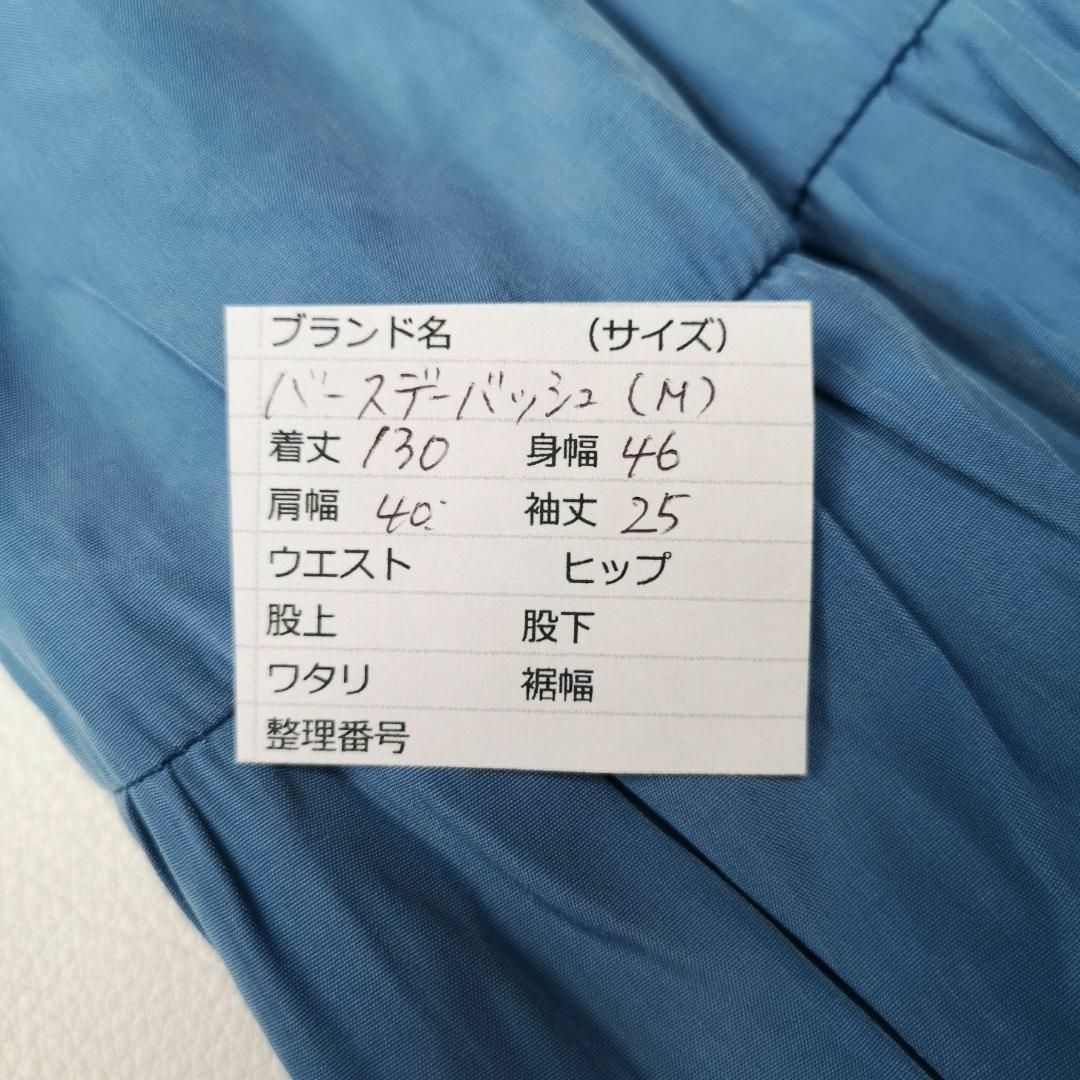 ブランド名 (サイズ)
バースデーバッシュ (M)
着丈 130 身幅 46
肩幅 40 袖丈 25
ウエスト ヒップ
股上 股下
ワタリ 裾幅
整理番号